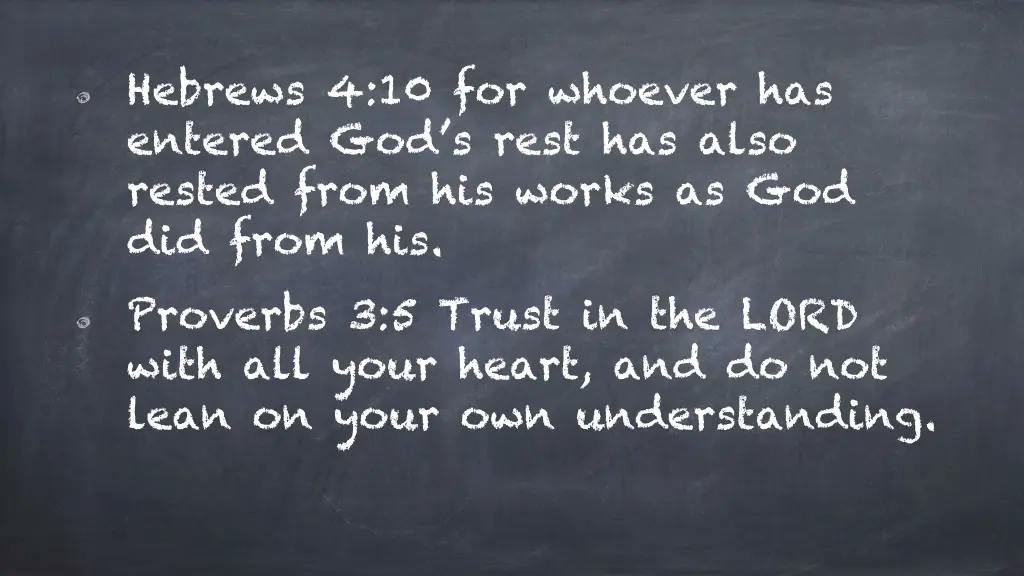 Hebrews 4:10 for whoever has
entered God's rest has also
rested from his works as God
did from his.
Proverbs 3:5 Trust in the LORD
with all your heart, and do not
lean on your own understanding.